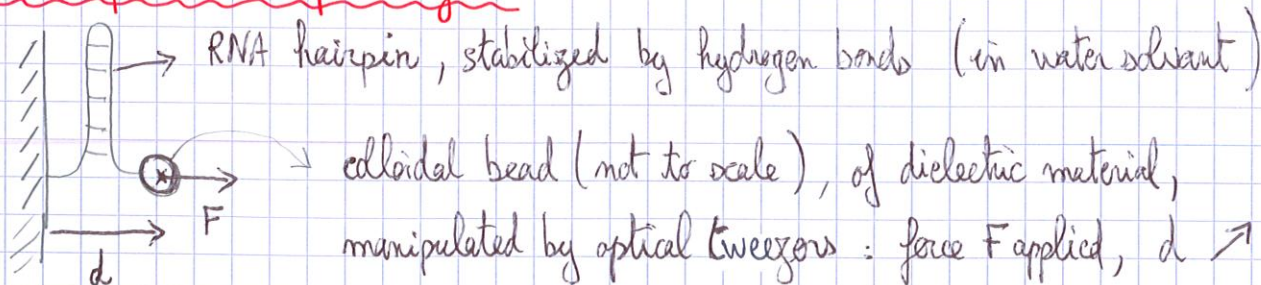 RNA hairpin, stabilized by hydrogen bonds (in water solvant)
colloidal bead (not to scale), of dielectric material,
F
manipulated by optical tweezers : force F applied, d ↗
d